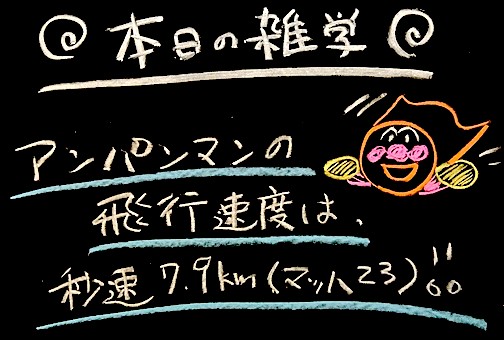 本日の雑学
アンパンマンの
飛行速度は、
秒速7.9km(マッハ23)!!